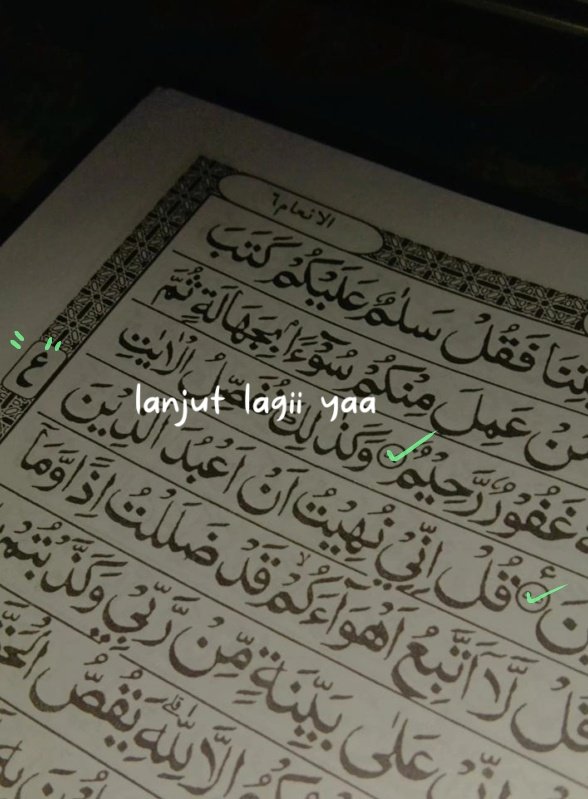 الانعام ٦
تِنَا فَقُلْ سَلٰمٌ عَلَيْكُمْ كَتَبَ
مَنْ عَمِلَ مِنْكُمْ سُوْٓءًاۢ بِجَهَالَةٍ ثُمَّ
ع
غَفُوْرٌ رَّحِيْمٌ وَكَذٰلِكَ نُفَصِّلُ الْاٰيٰتِ
lanjut lagii yaa
نَ قُلْ اِنِّيْ نُهِيْتُ اَنْ اَعْبُدَ الَّذِيْنَ
قُلْ لَّآ اَتَّبِعُ اَهْوَآءَكُمْ قَدْ ضَلَلْتُ اِذًا وَّمَآ
عَلٰى بَيِّنَةٍ مِّنْ رَّبِّيْ وَكَذَّبْتُمْ
اِلَّا لِلّٰهِ يَقُصُّ